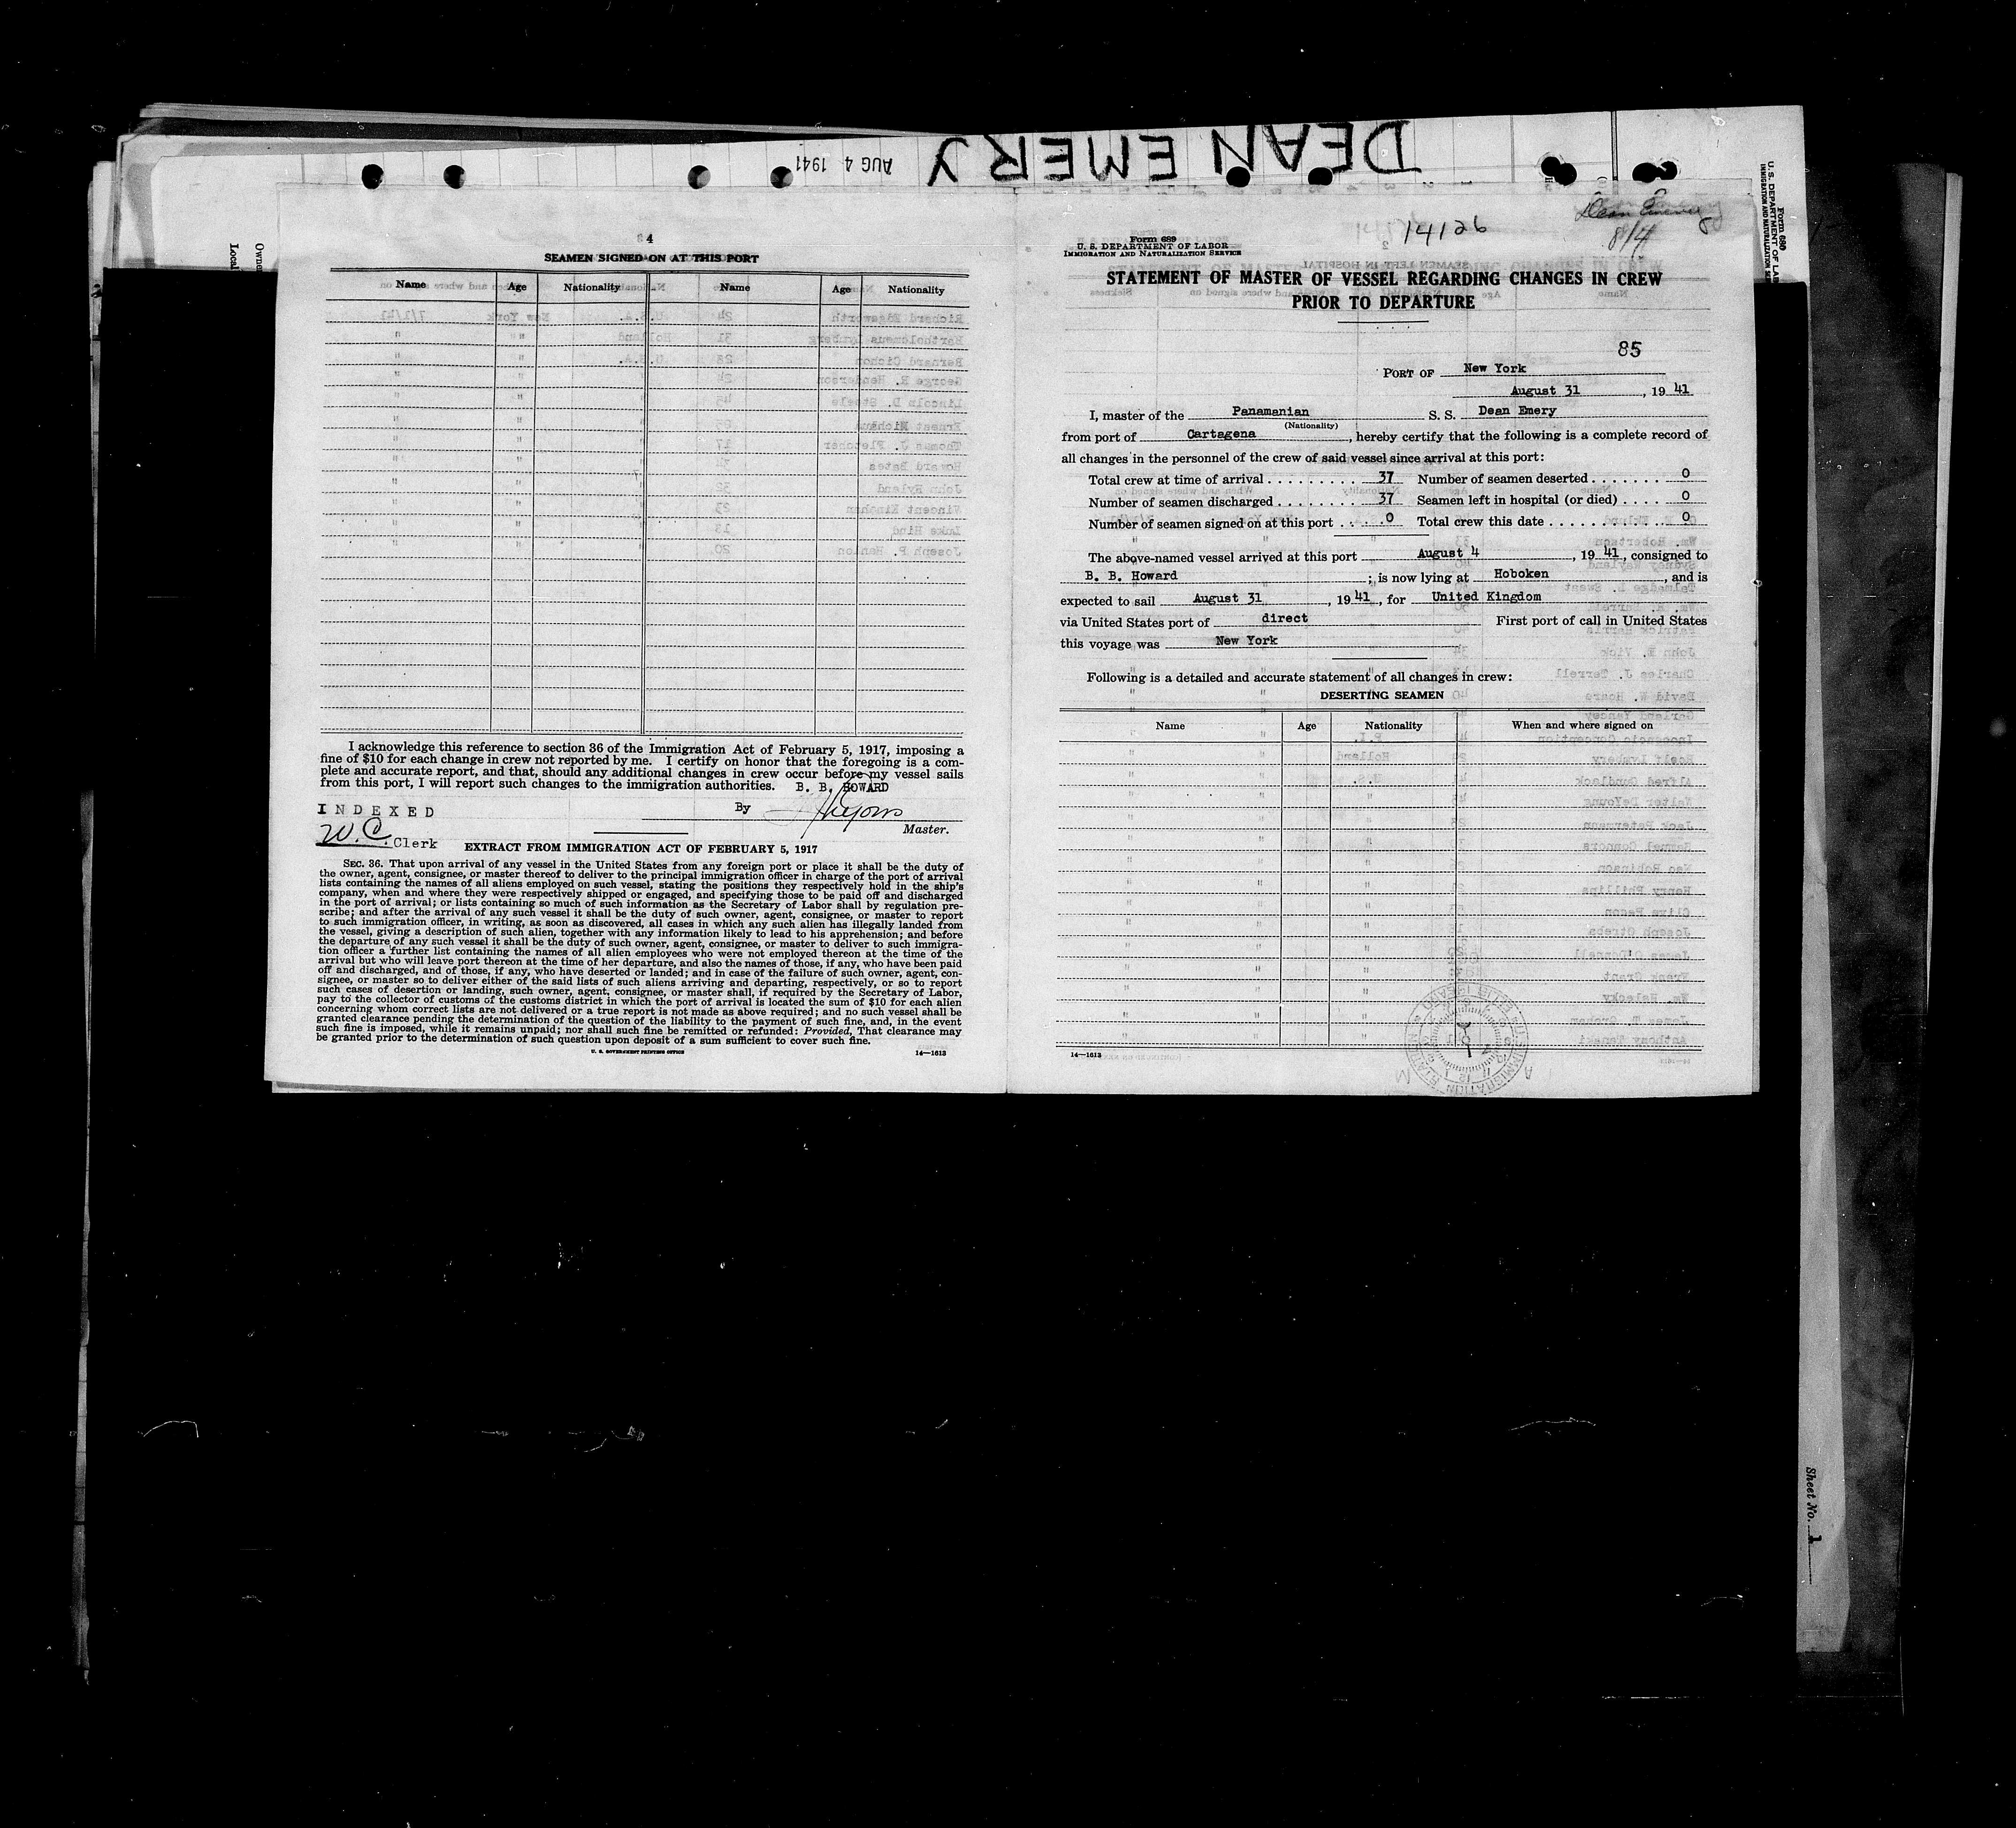 DEAN EMERY
AUG 4 1941
4
SEAMEN SIGNED ON AT THIS PORT
Name Age Nationality Name Age Nationality
I acknowledge this reference to section 36 of the Immigration Act of February 5, 1917, imposing a
fine of $10 for each change in crew not reported by me. I certify on honor that the foregoing is a com-
plete and accurate report, and that, should any additional changes in crew occur before my vessel sails
from this port, I will report such changes to the immigration authorities. B. B. HOWARD
INDEXED
By
Master.
W.C. Clerk
EXTRACT FROM IMMIGRATION ACT OF FEBRUARY 5, 1917
SEC. 36. That upon arrival of any vessel in the United States from any foreign port or place it shall be the duty of
the owner, agent, consignee, or master thereof to deliver to the principal immigration officer in charge of the port of arrival
lists containing the names of all aliens employed on such vessel, stating the positions they respectively hold in the ship's
company, when and where they were respectively shipped or engaged, and specifying those to be paid off and discharged
in the port of arrival; or lists containing so much of such information as the Secretary of Labor shall by regulation pre-
scribe; and after the arrival of any such vessel it shall be the duty of such owner, agent, consignee, or master to report
to such immigration officer, in writing, as soon as discovered, all cases in which any such alien has illegally landed from
the vessel, giving a description of such alien, together with any information likely to lead to his apprehension; and before
the departure of any such vessel it shall be the duty of such owner, agent, consignee, or master to deliver to such immigra-
tion officer a further list containing the names of all alien employees who were not employed thereon at the time of the
arrival but who will leave port thereon at the time of her departure, and also the names of those, if any, who have been paid
off and discharged, and of those, if any, who have deserted or landed; and in case of the failure of such owner, agent, con-
signee, or master so to deliver either of the said lists of such aliens arriving and departing, respectively, or so to report
such cases of desertion or landing, such owner, agent, consignee, or master shall, if required by the Secretary of Labor,
pay to the collector of customs of the customs district in which the port of arrival is located the sum of $10 for each alien
concerning whom correct lists are not delivered or a true report is not made as above required; and no such vessel shall be
granted clearance pending the determination of the question of the liability to the payment of such fine, and, in the event
such fine is imposed, while it remains unpaid; nor shall such fine be remitted or refunded: Provided, That clearance may
be granted prior to the determination of such question upon deposit of a sum sufficient to cover such fine.
U. S. GOVERNMENT PRINTING OFFICE 14—1613
Dean Emery
8/4
14126
Form 689
U. S. DEPARTMENT OF LABOR
IMMIGRATION AND NATURALIZATION SERVICE
STATEMENT OF MASTER OF VESSEL REGARDING CHANGES IN CREW
PRIOR TO DEPARTURE
85
PORT OF New York
August 31, 1941
I, master of the Panamanian S. S. Dean Emery
(Nationality)
from port of Cartagena, hereby certify that the following is a complete record of
all changes in the personnel of the crew of said vessel since arrival at this port:
Total crew at time of arrival 37 Number of seamen deserted 0
Number of seamen discharged 37 Seamen left in hospital (or died) 0
Number of seamen signed on at this port 0 Total crew this date 0
The above-named vessel arrived at this port August 4, 1941, consigned to
B. B. Howard; is now lying at Hoboken, and is
expected to sail August 31, 1941, for United Kingdom
via United States port of direct First port of call in United States
this voyage was New York
Following is a detailed and accurate statement of all changes in crew:
DESERTING SEAMEN
Name Age Nationality When and where signed on
14—1613
Form 680
U. S. DEPARTMENT OF LAB
IMMIGRATION AND NATURALIZATION SE
Owne
Local
Sheet No. 1